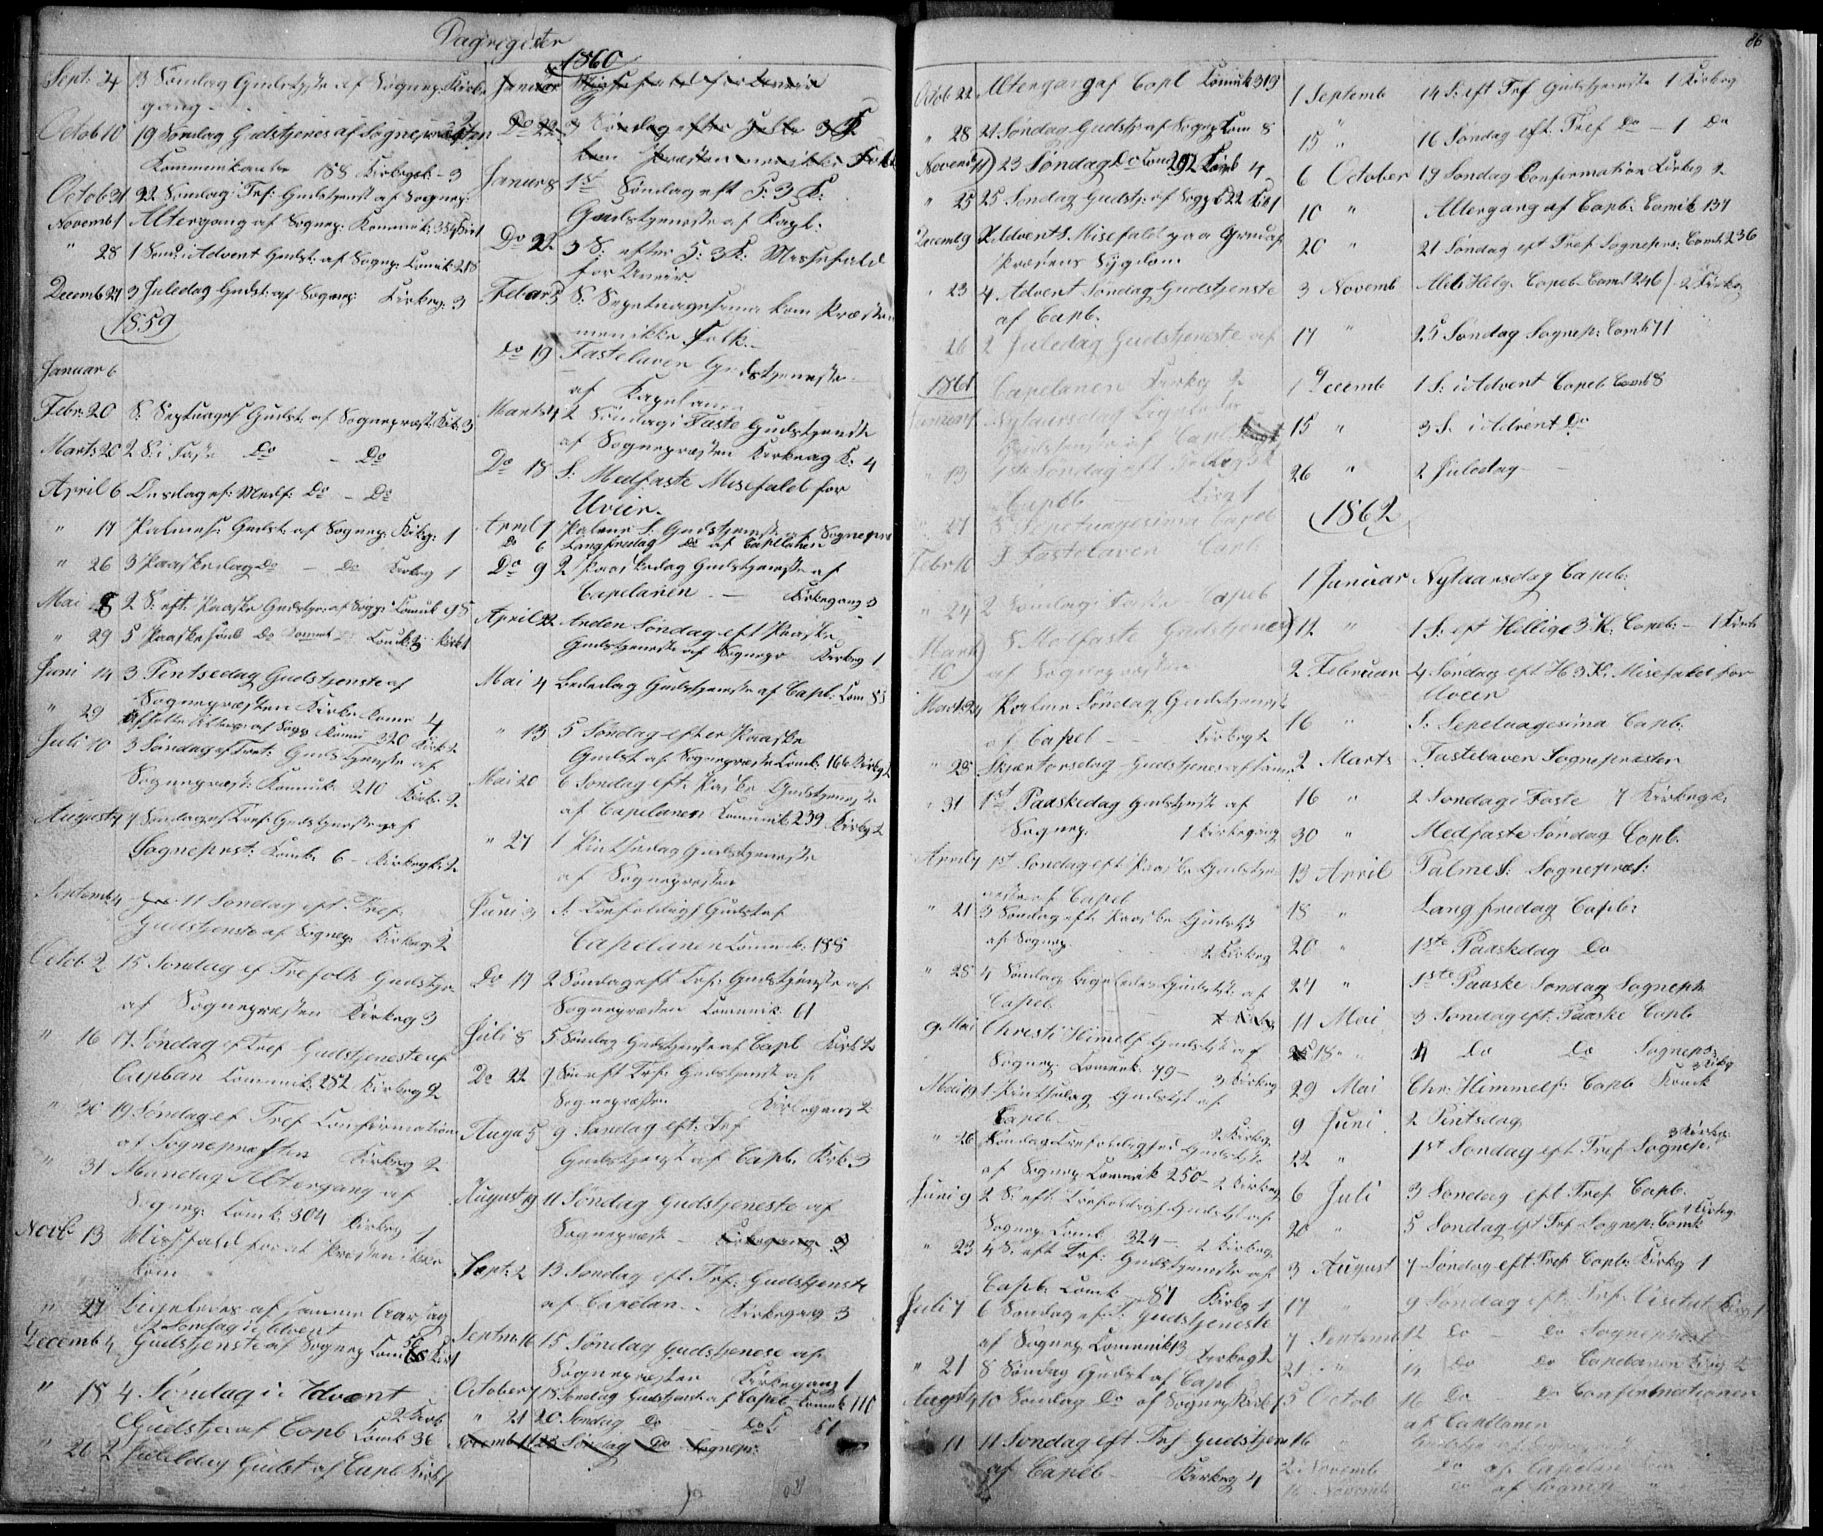 Dagregister
Sept. 24 13 Søndag Gudstjste af Sognep. Kirke
gang -
Octob 10 19 Søndag Gudstjenes af Sognepræsten
Kommunikanter 188 Kirkegk - 3
Octob 31 22 Søndag: Tref: Gudstjenst af Sognep:
Novemb 1 Altergang af Sognep: Kommuk: 354 Kir 1
" 28 1 Sønd: i Advent Gudst: af Sognep Komuk: 218
Decemb 27 3 Juledag Gudst: af Sognep: Kirkeg: 3
1859
Januar 6
Febr: 20 S: Septuages Gudst: af Sognepræst: Kirk: 3
Marts 20 2 S: i Faste Do - Do
April 6 Onsdag ef: Medf: Do - Do
" 17 Palmes: Gudst: af Sognep: Kirkg: 1
" 26 3 Paaskedag Do - Do Kirkeg 1
Mai 8 2 S: eft: Paaske Gudstje: af Sogp: Comuk 98
" 29 5 Paaske Sønd Do Comuk Kirk 1
Juni 14 3 Pentsedag Gudstjenste af
Sognepræsten Kirke Kone 4
" 29 Altog af Sogp Komu 320 Kirk 2
Juli 10 3 Søndag ef Tref: Gudstjenste af
Sognepræst: Komuk: 210 Kirk: 2
August 7 Søndag ef Tref: Gudstjenste af
Sognepræst: Komk: 6 - Kirkegk: 2
Septemb 4 11 Søndag eft: Tref:
Gudstjenste af Sognep: Kirkeg: 2
Octob 2 15 Søndag ef Trefolk Gudstje
af Sognepræsten Kirkeg 3
" 16 17 Søndag ef Tref Gudstjeneste af
Caplan Comunik: 282 Kirkeg 2
" 30 19 Søndag ef Tref Confirmation
af Sognepresten Kirkeg 2
" 31 Mandag Altergang af
Sognep: Comk: 304 Kirkeg 1
Novb 13 Missfald for at Presten ikke
kom
" 27 Ligeledes af samme Aarsag
2 Søndag i Advent
Decemb 4 Gudstjenste af Sognep Com Kir 1
" 18 4 Søndag i Advent
2 Kirk
Gudstje af Capl Comk 36
" 26 2 Juledag Gudst af Capl Kirk 1
1860
Januar
Do 22 3 Søndag efter Hellig 3 K
kom Præsten men ikke Folk
Januar 8 1st Søndag eft H: 3 K:
Gudstjeneste af Kapl:
Do 22 3 S: efter H: 3 K: Missefald
for Uveir.
Febuar 5 S: Segetuagesima kom Præsten
men ikke Folk -
Do 19 Fastelaven Gudstjeneste
af Kapelanen
Marts 4 2 Søndag i Faste Gudstjenste
af Sognepræsten Kirkeag K: 4
Do 18 S: Medfaste Misefald for
Uveir.
April 1 Palme S: Gudstjenste af Sognepre
Do 6 Langfredag Do af Caplanen
Do 9 2 Paaskedag Gudstjeneste af
Capelanen - Kirkegang 3
April 22 Anden Søndag eft Paaske
Gudstjeneste af Sognepr Kirkeg 1
Mai 4 Bededag Gudstjenste af Capl: Com 83
" 13 5 Søndag efter Paaske
Gudst af Sognepræste Comk: 166 Kirkeg 2
Mai 20 6 Søndag eft: Paaske Gudstjeneste
af Capelanen Comunik 239 Kirkeg 2
" 27 1 Pintsedag Gudstjeneste
af Sognepresten
Juni 3 S: Trefoldigf Gudst af
Capelanen Comunk: 188
Do 17 2 Søndag eft Tref: Gudstjenste af
Sognepræsten Comunik 61
Juli 8 5 Søndag Gudstjenste af Capl Kirk 2
Do 22 7 Søn eft Tref: Gudstjenst af
Sognepræsten Kirkegang 2
Augu 5 9 Søndag eft: Tref
Gudstjenst af Capl. Kirk: 3
August 19 11 Søndag Gudstjeneste af
Sognepræste - Kirkegang 3
Sept: 2 13 Søndag eft Tref: Gudstjenste
af Capelan - Kirkegang 3
Septm 16 15 Søndag Gudstjenese af
Sognepræsten Kirkegang 1
October 7 18 Søndag Gudstjenste af Capl Comuk 110
" 21 20 Søndag Do Do 81
Novemb 11 23 Søndag Do Sognepr:
86
Octob 22 Altergang af Capl Comuk 319
" 28 21 Søndag Gudstje af Sogp Com 8
Novemb 11 23 Søndag Do Com 292 Kirk 4
" 25 25 Søndag Gudstj: af Sogp 22 Kir 1
Decemb 9 2 Advents Misefald paa Grund af
Præstens Sygdom
" 23 4 Advent Søndag Gudstjenste
af Capl.
" 26 2 Juledag Gudstjeneste af
1861 Capelanen Kirkg 2
Januar 1 Nytaarsdag Ligeledes
Gudstjenste af Capl
" 13 1ste Søndag eft Hellig 3 K
Capl Kirg 1
" 27 S Septuagesima Capel
Febr 10 S Fastelaven Capl
" 24 2 Søndag i Faste Capel
Marts 10 S Medfaste Gudstjenes
af Sognepræsten
Marts 24 Palme Søndag Gudstjenest
af Capel - Kirkegk
" 28 Skjærtorsdag Gudstjenes af samm
" 31 1st Paaskedag Gudstjenst af
Sognep: 1 Kirkegang
April 7 1st Søndag eft Paaske Gudstje
neste af Capel
" 21 3 Søndag eft Paaske Gudstj
af Sognep 2 Kirkeg
" 28 4 Søndag Ligeledes Gudstj: af
Capel
9 Mai Christi Himelf Gudstjt af
Sognep: Comunk. 79 - 3 Kirkeg
Mai 19 1 Pintsedag Gudstjt af
Capel - 2 Kirkeg
" 26 Søndag Trefoldigfed Gudstjte
af Sognep Comunik 250 - 2 Kirkeg
Juni 9 2 S: eft: Trefoldigf Gudstjt af
Sognep Comk 324 - 2 Kirkeg
" 23 4 S: eft Tref: Gudstjeneste af
Capl: Comk - 87 Kirkg 1
Juli 7 6 Søndag eft: Gudstjeneste
af Sognep Comunik 13 Kirkeg 2
" 21 8 Søndag Gudst af Capl
August 4 10 Søndag Do af Sognep Kirk 1
" 11 11 Søndag eft Tref Gudstjen
af Capel - Kirkeg 4
1 Septemb 14 S: eft Tref Gudstjeneste 1 Kirkeg
15 " 16 Søndag eft: Tref Do - 1 Do
6 October 19 Søndag Confirmation Kirkeg 2
10 " Altergang af Capl: Comik 137
20 " 21 Søndag eft Tref Sognepr: Comk 236
3 Novemb Alle Helg. Capel. Comk 246 / 2 Kirkeg
17 " 25 Søndag Sognep: Comk 71
1 Decemb 1 S: i Advent Capel Comk 8
15 " 3 S: i Advent Do
26 " 2 Juledag -
1862
1 Januar Nytaarsdag Capel.
12 " 1 S: eft Hellige 3 K: Capel: - 1 Kirk
2 Februar 4 Søndag eft H 3 K: Misefald for
Uveir
16 " S: Sepetuagesima Capl.
2 Marts Fastelaven Sognepresten
16 " 2 Søndag i Faste 7 Kirkegk:
30 " Medfaste Søndag Capl.
13 April Palmes: Sognepræst:
18 " Langfredag Capl:
20 " 1ste Paaskedag Do
24 " 1ste Paaske Søndag Sognepr
11 Mai 3 Søndag eft: Paaske Capl
18 " 4 Do Do Sognepr:
3 Kirkg
29 Mai Chr: Himmelf: Capl Komk
9 Juni 2 Pintsdag
3 Kirkeg:
22 " 1st Søndag eft Tref Sognep:
6 Juli 3 Søndag eft Tref Capl.
1 Kirkeg
20 " 5 Søndag eft Tref Sognep: Comk
3 August 7 Søndag eft Tref. Capl: Kirkg 1
17 " 9 Søndag eft: Tref: Visitat: Kirk 1
7 Septemb 12 Do - Do Sognepræst
21 " 14 Do Do Capelanen Kirg 2
5 Octob 16 Do Do Confirmationen
af Capelanen
16
2 Novemb Do af Capelan
16 Novemb Do af Sognep "